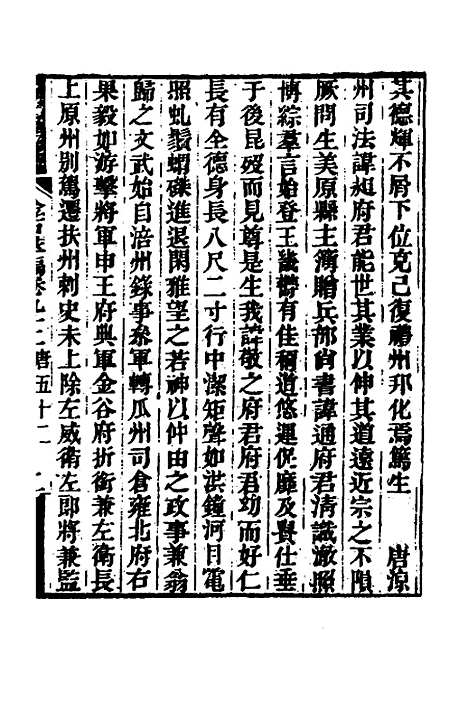 其德輝不屑下位克己復禮州邦化焉篤生　唐源
州司法諱昶府君能世其業以伸其道遠近宗之不隕
厥問生美原縣主簿贈兵部尚書諱通府君淸識澈照
博綜羣言始登王畿鬱有佳稱道悠運促廳及賢仕垂
于後昆歿而見尊是生我諱敬之府君府君幼而好仁
長有全德身長八尺二寸行中潔矩聲如洪鐘河目電
照虬鬚蝟磔進退閑雅望之若神以仲由之政事兼翁
歸之文武始自涪州錄事參軍轉瓜州司倉雍北府右
果毅加游擊將軍申王府典軍金谷府折衝兼左衛長
上原州別駕遷扶州刺史未上除左威衛左郎將兼監
金石萃編卷九十二唐五十二